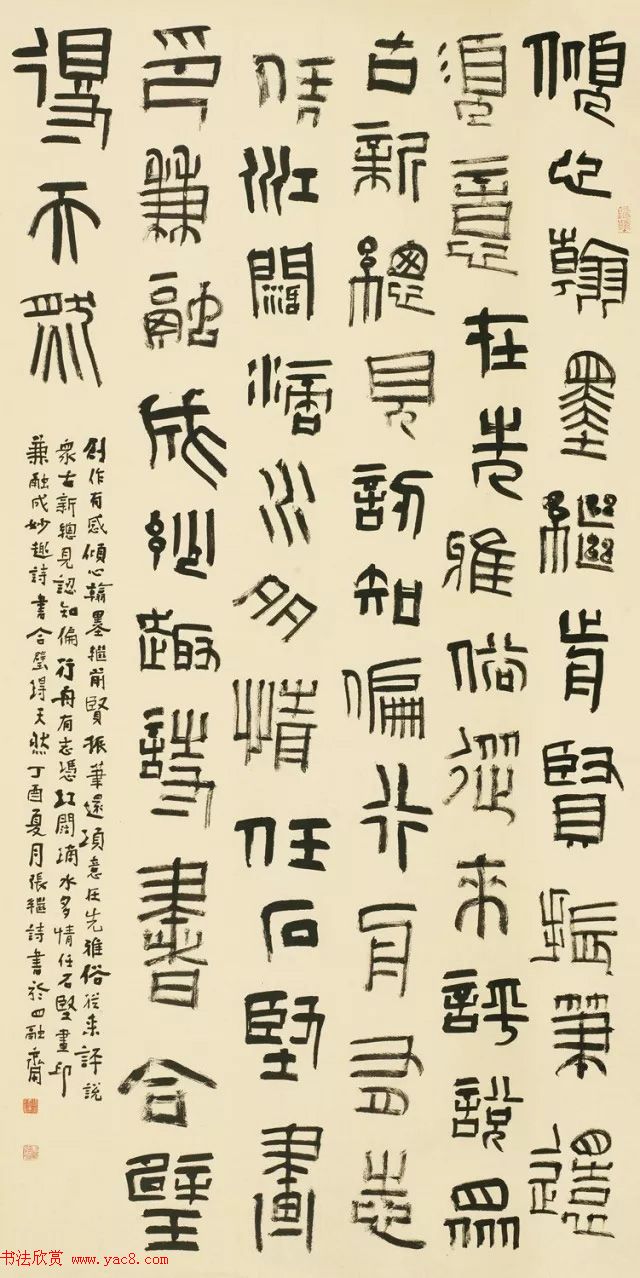 傾心翰墨繼前賢振筆還
須意在先雅俗從來評說眾
古新總見認知偏行舟有志
凭江闊滴水多情任石堅畫
印兼融成妙趣詩書合璧
得天然
創作有感傾心翰墨繼前賢振筆還須意在先雅俗從來評說
眾古新總見認知偏行舟有志憑江闊滴水多情任石堅畫印
兼融成妙趣詩書合璧得天然丁酉夏月張繼詩書於四融齋
书法欣赏 www.yac8.com